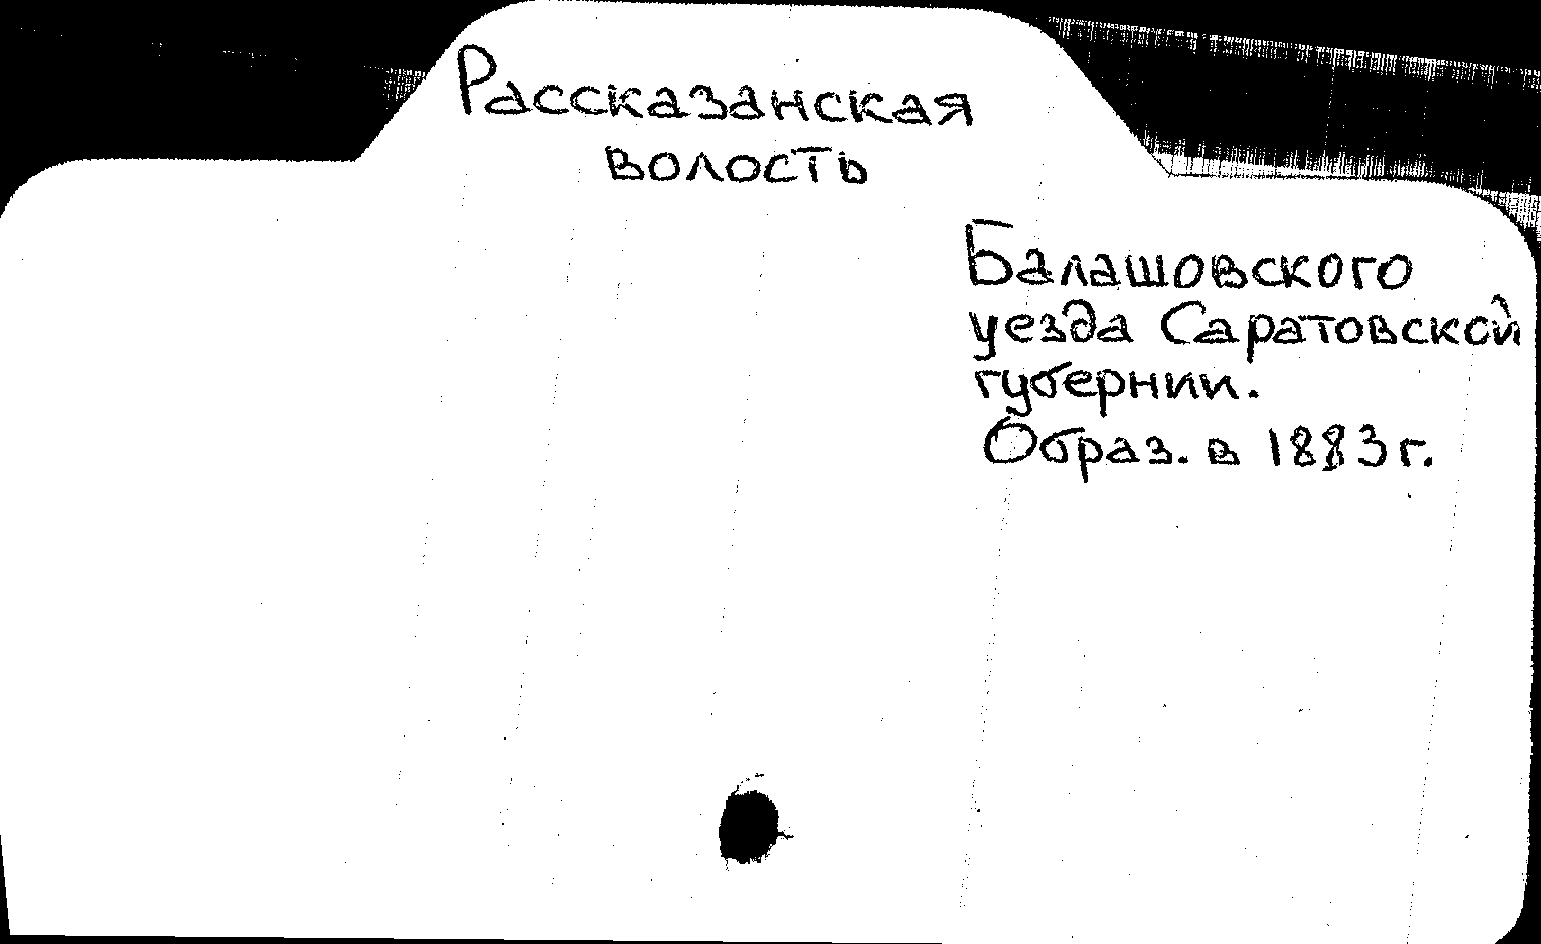 Рассказанская
волость
Балашовского
уезда Саратовской
губернии.
Образ. в 1883 г.